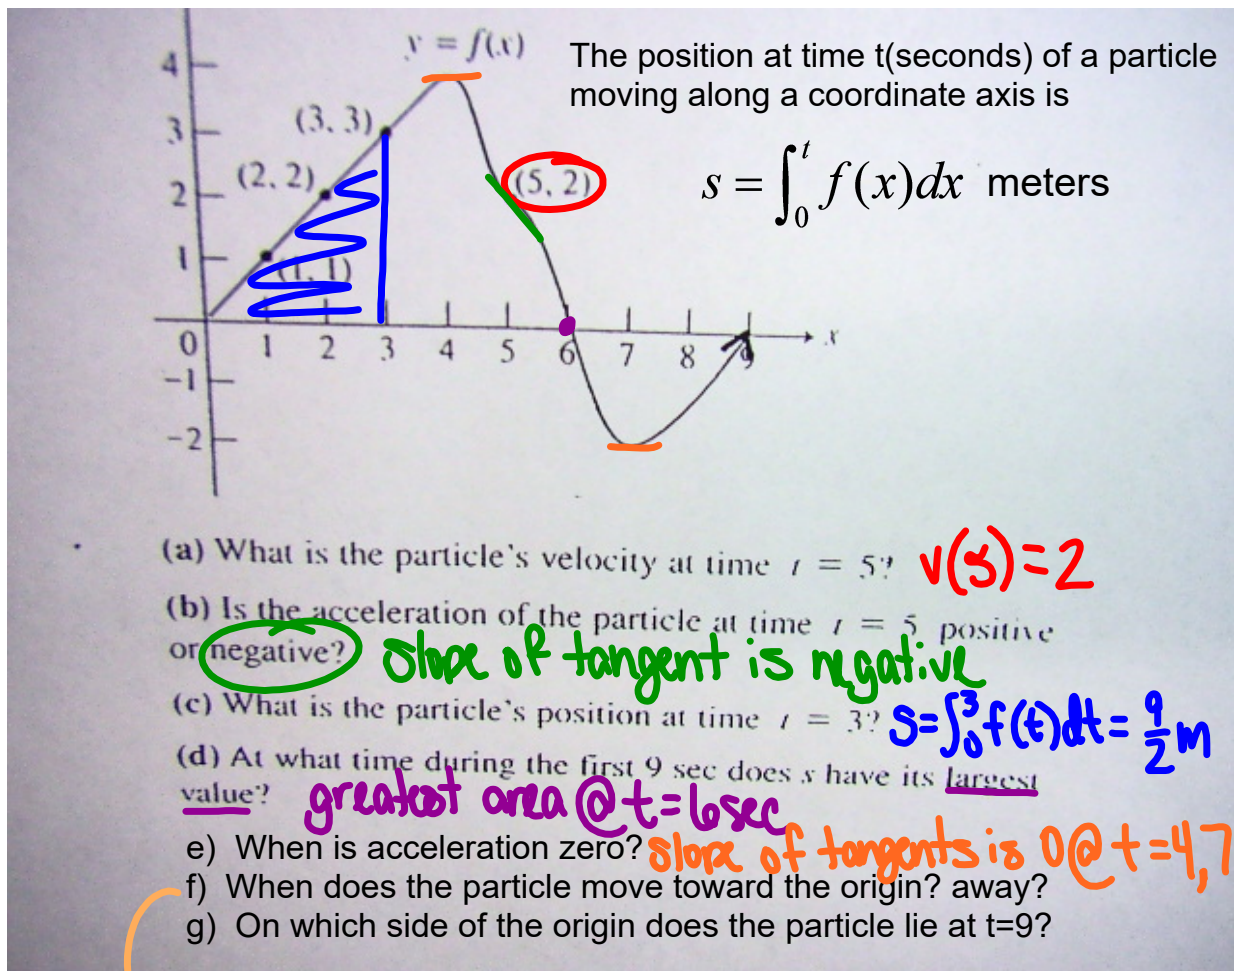 y = f(x)
The position at time t(seconds) of a particle
moving along a coordinate axis is
s = ∫₀ᵗ f(x)dx meters
4
3
2
1
0
-1
-2
(3, 3)
(2, 2)
(1, 1)
(5, 2)
1 2 3 4 5 6 7 8 9 x
(a) What is the particle's velocity at time t = 5? v(5)=2
(b) Is the acceleration of the particle at time t = 5 positive
or negative? slope of tangent is negative
(c) What is the particle's position at time t = 3? s=∫₀³f(t)dt= 9/2 m
(d) At what time during the first 9 sec does s have its largest
value? greatest area @ t=6sec
e) When is acceleration zero? slope of tangents is 0 @ t=4,7
f) When does the particle move toward the origin? away?
g) On which side of the origin does the particle lie at t=9?